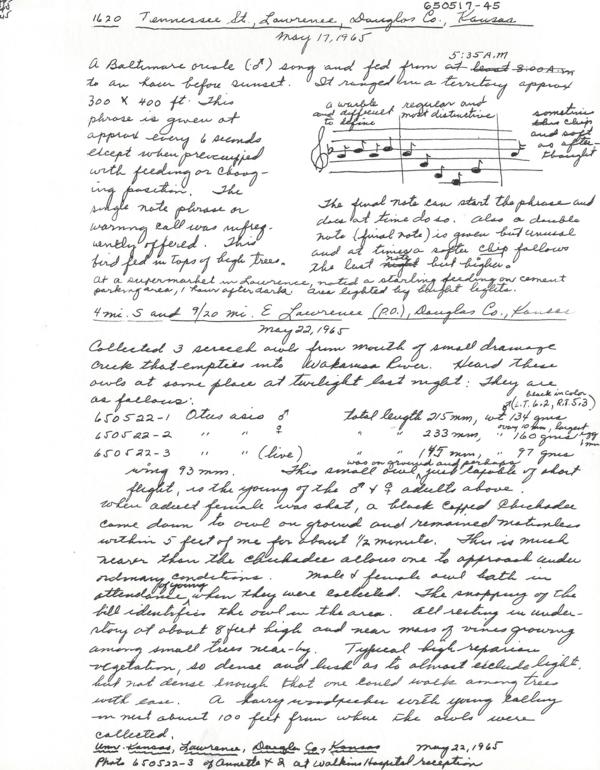 650517-45
1620 Tennessee St., Lawrence, Douglas Co., Kansas
May 17, 1965
5:35 A.M
A Baltimore oriole (♂) song and fed from at least 8:00 A.m
to an hour before sunset. It ranged in a territory approx
300 x 400 ft. This
phrase is given at
approx every 6 seconds
except when preoccupied
with feeding or chang-
ing position. The
single note phrase or
warning call was infreq-
uently offered. This
bird fed in tops of high trees.
a warble
and difficult
to define
regular and
most distinctive
sometime
this clip
and soft
as after-
thought
The final note can start the phrase and
does at time do so. Also a double
note (final note) is given but unusual
and at times a softer clip follows
the last note but higher.
At a supermarket in Lawrence, noted a starling feeding on cement
parking area, 1 hour after dark. Area lighted by bright lights.
4 mi. S and 9/20 mi. E Lawrence (P.O.), Douglas Co., Kansas
May 22, 1965
Collected 3 screech owls from mouth of small drainage
creek that empties into Wakarusa River. Heard these
owls at same place at twilight last night. They are
as follows:
black in color
♂(L.T. 6.2, R.T. 5.3)
650522-1 Otus asio ♂ total length 215 mm, wt 134 gms
ovary 10 mm, largest egg 1 mm
650522-2 " " ♀ " " 233 mm, " 160 gms
650522-3 " " (live) " " 145 mm, " 97 gms
was on ground and perhaps
wing 93 mm. This small owl just capable of short
flight, is the young of the ♂ & ♀ adults above.
When adult female was shot, a black capped Chickadee
came down to owl on ground and remained motionless
within 5 feet of me for about 1/2 minute. This is much
nearer than the chickadee allows one to approach under
ordinary conditions. Male & female owl both in
attendance of young when they were collected. The snapping of the
bill identifies the owl in the area. All resting in under-
story at about 8 feet high and near mass of vines growing
among small trees near-by. Typical high reparian
vegetation, so dense and lush as to almost exclude light,
but not dense enough that one could walk among trees
with ease. A hairy woodpecker with young calling
in nest about 100 feet from where the owls were
collected.
Univ. Kansas, Lawrence, Douglas Co., Kansas May 22, 1965
Photo 650522-3 of Annette & I at Watkins Hospital reception